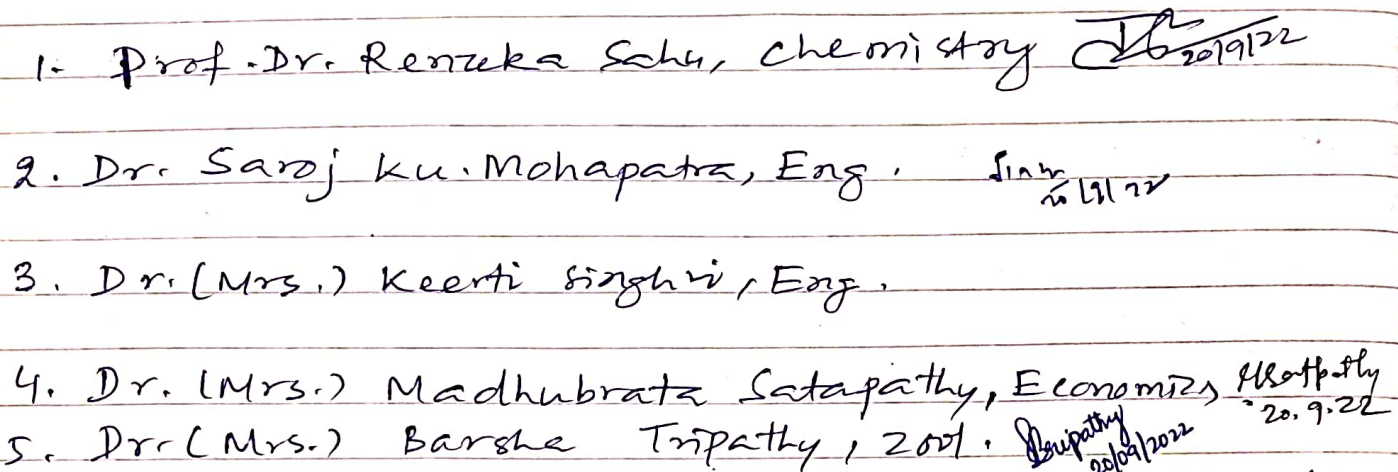 1. Prof. Dr. Renuka Sahu, Chemistry 20/9/22
2. Dr. Saroj Ku. Mohapatra, Eng.
3. Dr. (Mrs.) Keerti Singhvi, Eng.
4. Dr. (Mrs.) Madhubrata Satapathy, Economics 20.9.22
5. Dr. (Mrs.) Barsha Tripathy, Zool. 20/09/2022